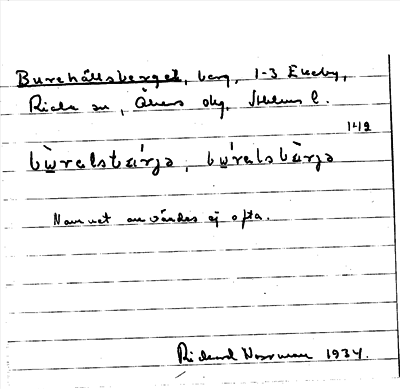 Burehällsberget, berg, 1-3 Ekeby,
Riala sn, Åkers skg, Sthlms l.
142
bẁralsbárja, bẃralsbàrja
Namnet användes ej ofta.
Rickard Norrman 1934.